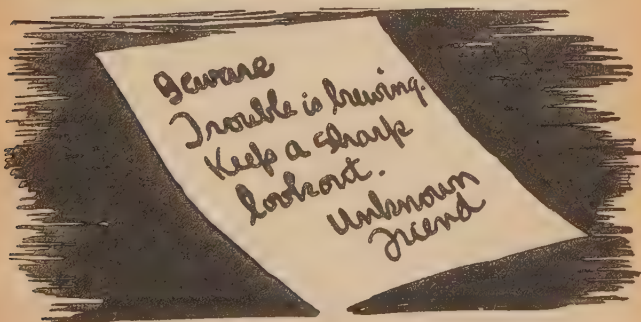 Beware
Trouble is brewing.
Keep a sharp
lookout.
Unknown
Friend